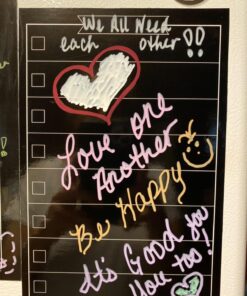 We All Need
each other!!
Love one
Another
Be Happy
It's Good you
You too!